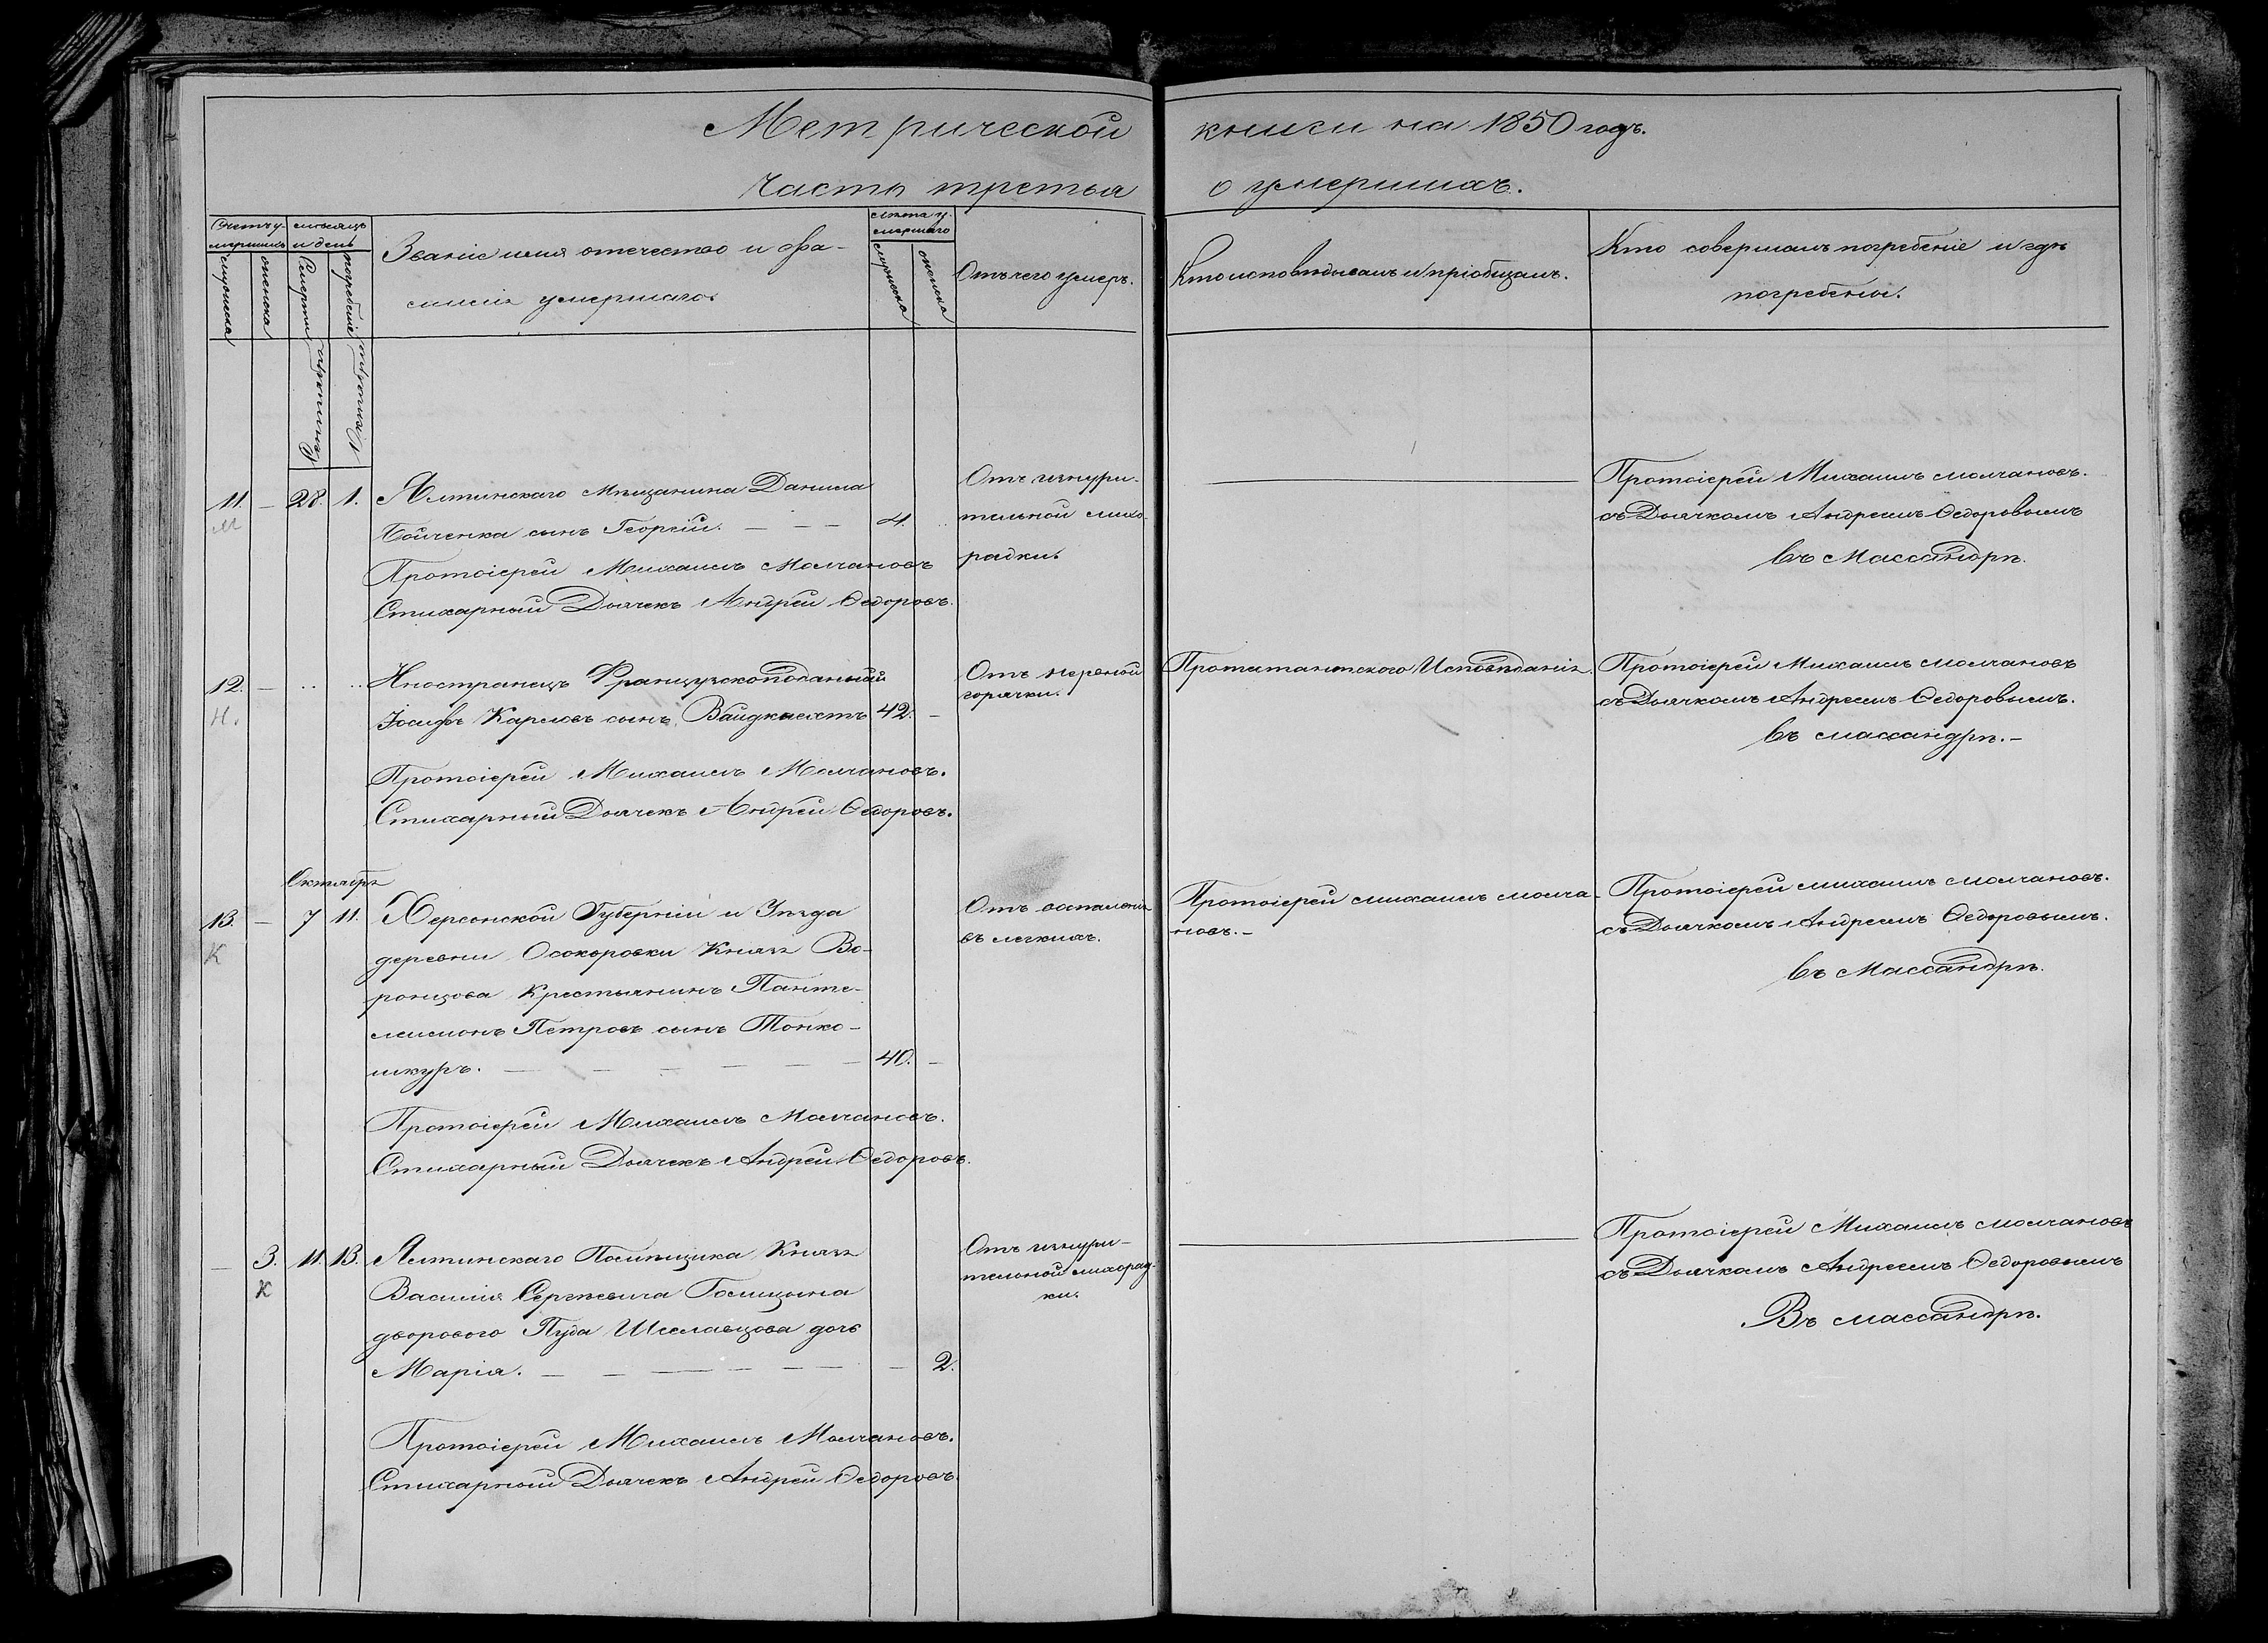 Метрической книги на 1850 годъ.
Часть третья о умершихъ.
Счетъ у-
мершихъ
мужеска
женска
месяцъ
и день
Смерти
погребенiе
Званiе имя отечество и фа-
милiя умершаго.
лѣта у-
мершаго
мужеска
женска
Отъ чего умеръ.
Кто исповѣдывалъ и прiобщалъ.
Кто совершалъ погребенiе и гдѣ
погребены.
Сентября
Октября
11. — 28. 1. Ялтинскаго Мѣщанина Данила
Бойченка сынъ Георгiй. — — — 4.
Протоiерей Михаилъ Молчановъ
Стихарный Дьячекъ Андрей Ѳедоровъ.
М
Отъ изнури-
тельной лихо-
радки.
Протоiерей Михаилъ Молчановъ.
съ Дьячкомъ Андреемъ Ѳедоровымъ
Въ Массандрѣ.
12. — .. .. Иностранецъ Французскоподаный
Iосифъ Карловъ сынъ Вайдкнехтъ 42. —
Протоiерей Михаилъ Молчановъ.
Стихарный Дьячекъ Андрей Ѳедоровъ.
Н.
Отъ нервной
горячки.
Протестантского Исповѣданiя.
Протоiерей Михаилъ Молчановъ
съ Дьячкомъ Андреемъ Ѳедоровымъ.
Въ Массандрѣ. —
Октября
13. — 7 11. Херсонской Губернiи и Уѣзда
деревни Осокоровки Князя Во-
ронцова Крестьянинъ Панте-
леимонъ Петровъ сынъ Тонко-
шкуръ. — — — — — — 40. —
Протоiерей Михаилъ Молчановъ.
Стихарный Дьячекъ Андрей Ѳедоровъ.
К
Отъ воспаленiя
въ легкихъ.
Протоiерей Михаилъ Молча-
новъ. —
Протоiерей Михаилъ Молчановъ.
съ Дьячкомъ Андреемъ Ѳедоровымъ.
Въ Массандрѣ.
— 3. 11. 13. Ялтинскаго Помѣщика Князя
Василiя Сергѣевича Голицына
двороваго Пуда Шелавцова дочь
Марiя. — — — — — — — 2.
Протоiерей Михаилъ Молчановъ.
Стихарный Дьячекъ Андрей Ѳедоровъ.
К
Отъ изнури-
тельной лихорад-
ки.
Протоiерей Михаилъ Молчановъ
съ Дьячкомъ Андреемъ Ѳедоровымъ
Въ Массандрѣ.